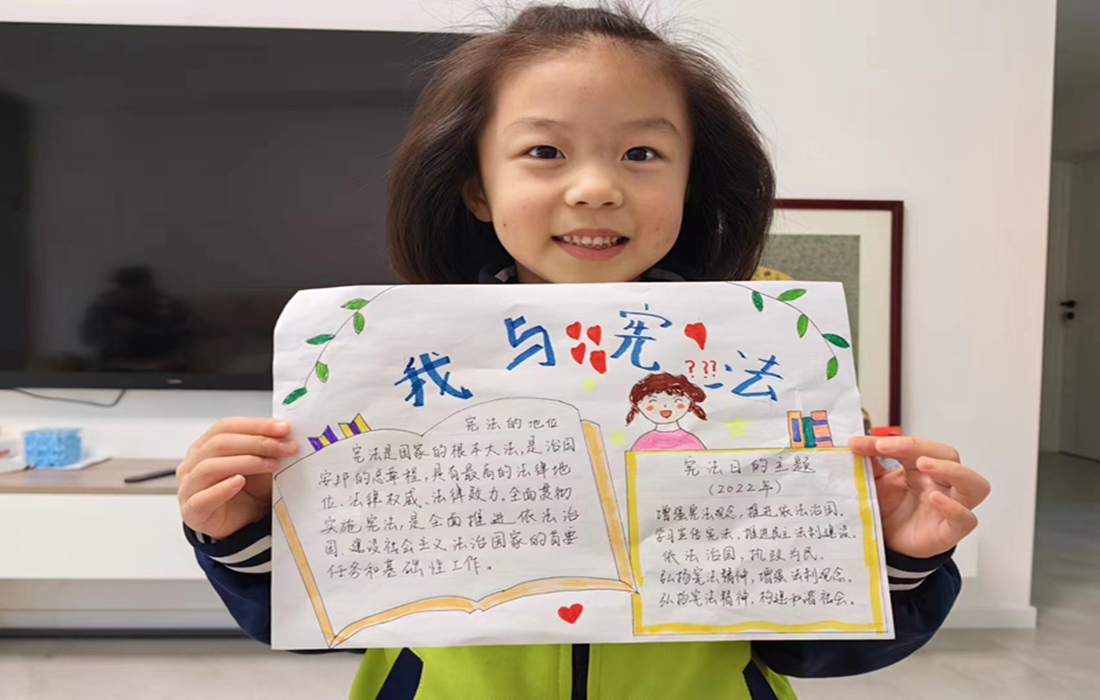 我与宪法
???
宪法的地位
宪法是国家的根本大法,是治国
安邦的总章程,具有最高的法律地
位、法律权威、法律效力。全面贯彻
实施宪法,是全面推进依法治
国、建设社会主义法治国家的首要
任务和基础性工作。
宪法日的主题
(2022年)
增强宪法观念,推进依法治国。
学习宣传宪法,推进民主法制建设。
依法治国,执政为民。
弘扬宪法精神,增强法制观念。
弘扬宪法精神,构建和谐社会。